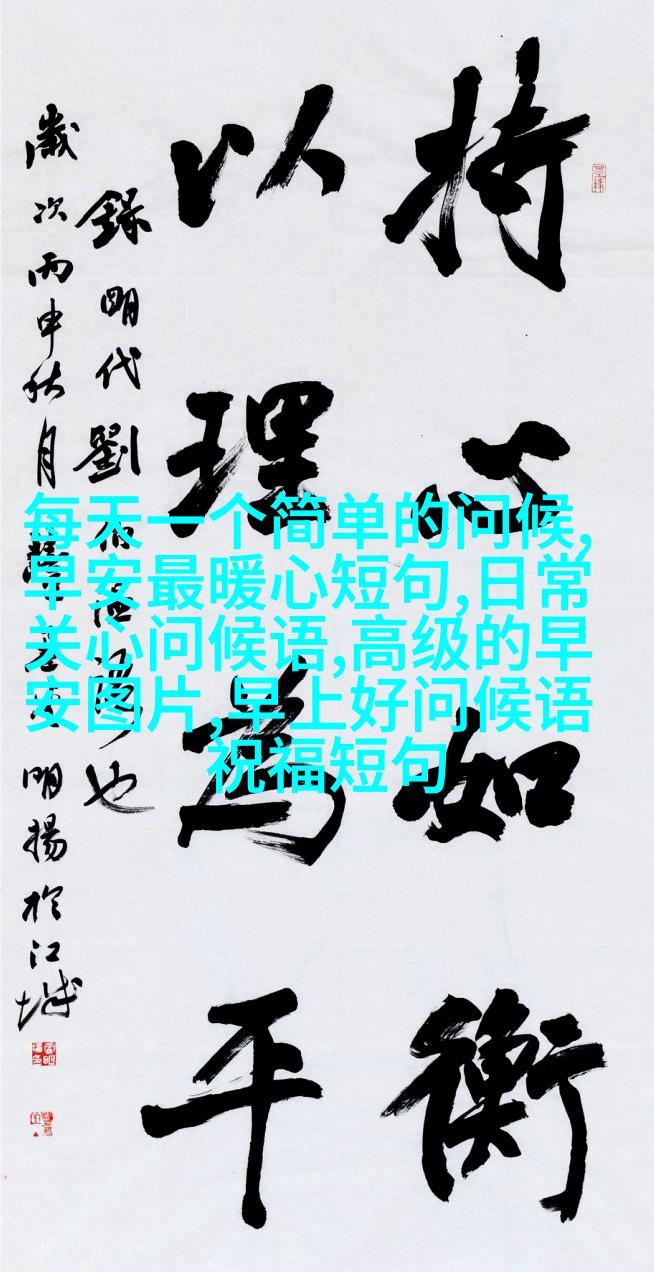 持心如衡
以理為平
錄明代劉伯温語也
歲次丙申秋月
明揚於江城
每天一个简单的问候,
早安最暖心短句,日常
关心问候语,高级的早
安图片,早上好问候语
祝福短句